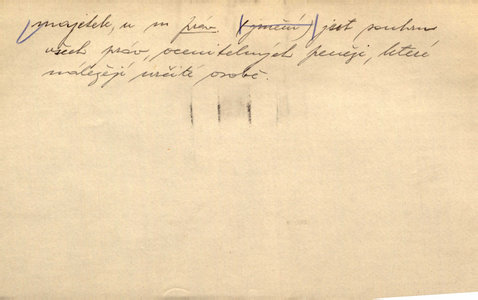 majetek, u m prav (jmění) jest souhrn
všech práv, ocenitelných penězi, které
náležejí určité osobě.